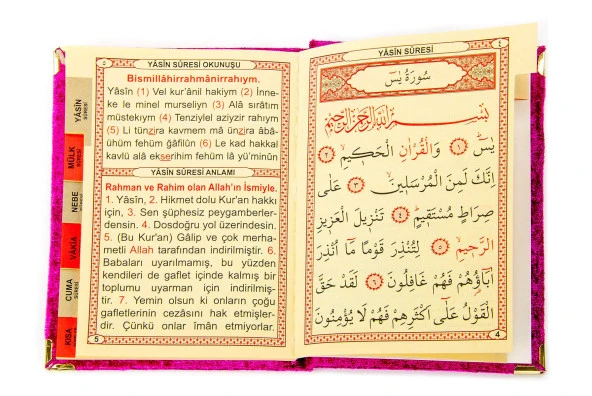 ٥
YÂSİN SÛRESİ OKUNUŞU
Bismillâhirrahmânirrahıym.
Yâsîn (1) Vel kur'ânil hakiym (2) İnne-
ke le minel murseliyn (3) Alâ sırâtım
müstekıym (4) Tenziylel aziyzir rahıym
(5) Li tünzira kavmem mâ ünzira âbâ-
ühüm fehüm ğâfilûn (6) Le kad hakkal
kavlü alâ ekserihim fehüm lâ yü'minûn
YÂSİN SÛRESİ ANLAMI
Rahman ve Rahim olan Allah'ın İsmiyle.
1. Yâsîn, 2. Hikmet dolu Kur'an hakkı
için, 3. Sen şüphesiz peygamberler-
densin. 4. Dosdoğru yol üzerindesin.
5. (Bu Kur'an) Gâlip ve çok merha-
metli Allah tarafından indirilmiştir. 6.
Babaları uyarılmamış, bu yüzden
kendileri de gaflet içinde kalmış bir
toplumu uyarman için indirilmiş-
tir. 7. Yemin olsun ki onların çoğu
gafletlerinin cezâsını hak etmişler-
dir. Çünkü onlar îmân etmiyorlar.
5
YÂSİN
SÛRESİ
MÜLK
SÛRESİ
NEBE
SÛRESİ
VÂKIA
CUMA
SÛRESİ
KISA
YÂSİN SÛRESİ
٤
سُورَةُ يٰسٓ
بِسْمِ اللّٰهِ الرَّحْمٰنِ الرَّحِيمِ
يٰسٓ ﴿١﴾ وَالْقُرْاٰنِ الْحَكِيمِ ﴿٢﴾
اِنَّكَ لَمِنَ الْمُرْسَلِينَ ﴿٣﴾ عَلٰى
صِرَاطٍ مُسْتَقِيمٍ ﴿٤﴾ تَنْزِيلَ الْعَزِيزِ
الرَّحِيمِ ﴿٥﴾ لِتُنْذِرَ قَوْمًا مَٓا اُنْذِرَ
اٰبَٓاؤُهُمْ فَهُمْ غَافِلُونَ ﴿٦﴾ لَقَدْ حَقَّ
الْقَوْلُ عَلٰٓى اَكْثَرِهِمْ فَهُمْ لَا يُؤْمِنُونَ
4